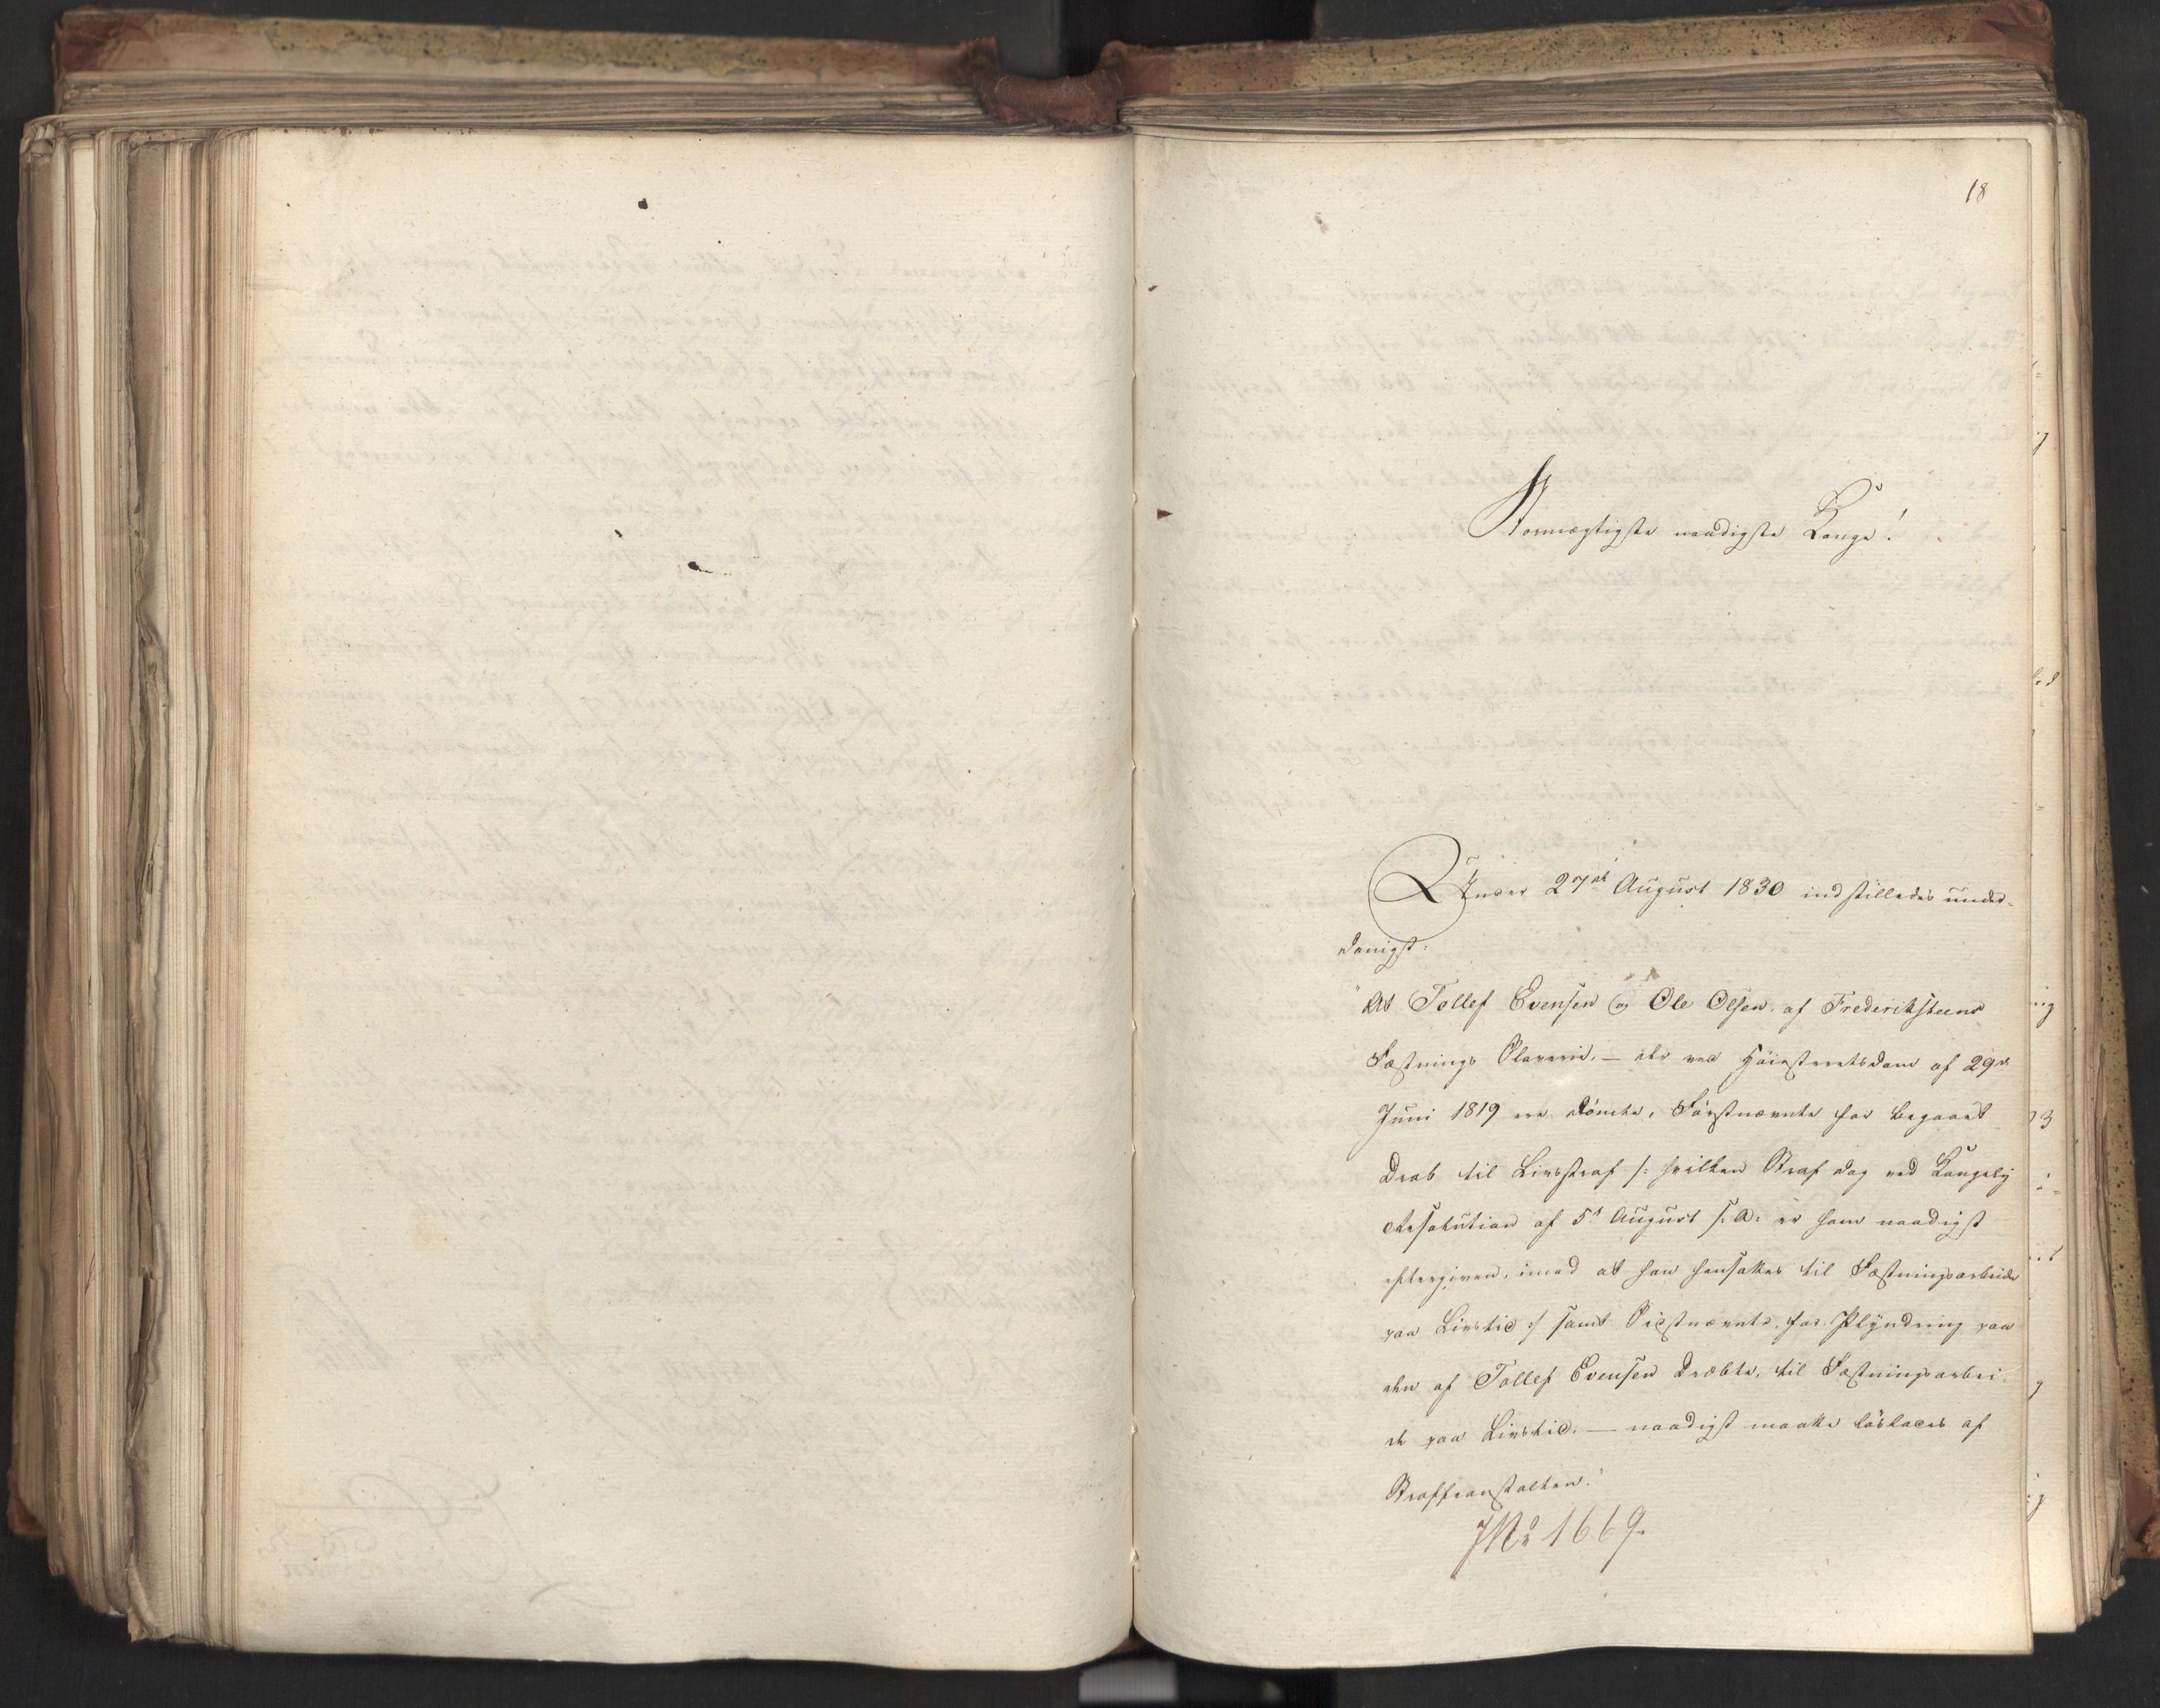 18
Stormægtigste naadigste Konge!
Under 27de August 1830 indstilledes under-
danigst:
"At Tollef Evensen og Ole Olsen, af Frederiksteens
Fæstnings Slaverie, — der ved Høiesteretsdom af 29de
Juni 1819 ere dømte, Førstnævnte for begaaet
Drab til Livsstraf /: hvilken Straf dog ved Kongelig
Resolution af 5te August s. A. er ham naadigst
eftergiven, imod at han hensættes til Fæstningsarbeide
paa Livstid :/ samt Sidstnævnte, for Plyndring paa
den af Tollef Evensen Dræbte, til Fæstningsarbei-
de paa Livstid, — naadigst maatte løslades af
Straffeanstalten."
JNo 1669.